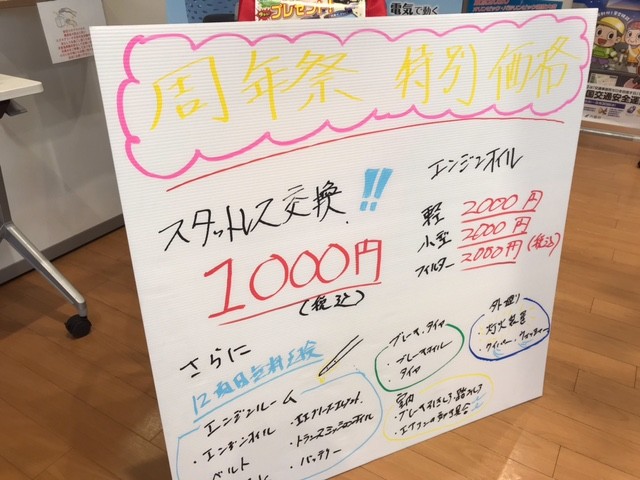 プレゼント
電気で動く
周年祭 特別価格
スタットレス交換!!
1000円
(税込)
エンジンオイル
軽 2000円
小型 2000円
フィルター 2000円(税込)
さらに
12項目無料点検
エンジンルーム
・エンジンオイル
ベルト
・トランスミッションオイル
・バッテリー
ブレーキ、タイヤ
・ブレーキオイル
タイヤ
室内
・ブレーキ引きしろ・踏みしろ
・エアコンの効き具合
外廻り
・灯火装置
・ワイパー・ウォッシャー
国交通安全